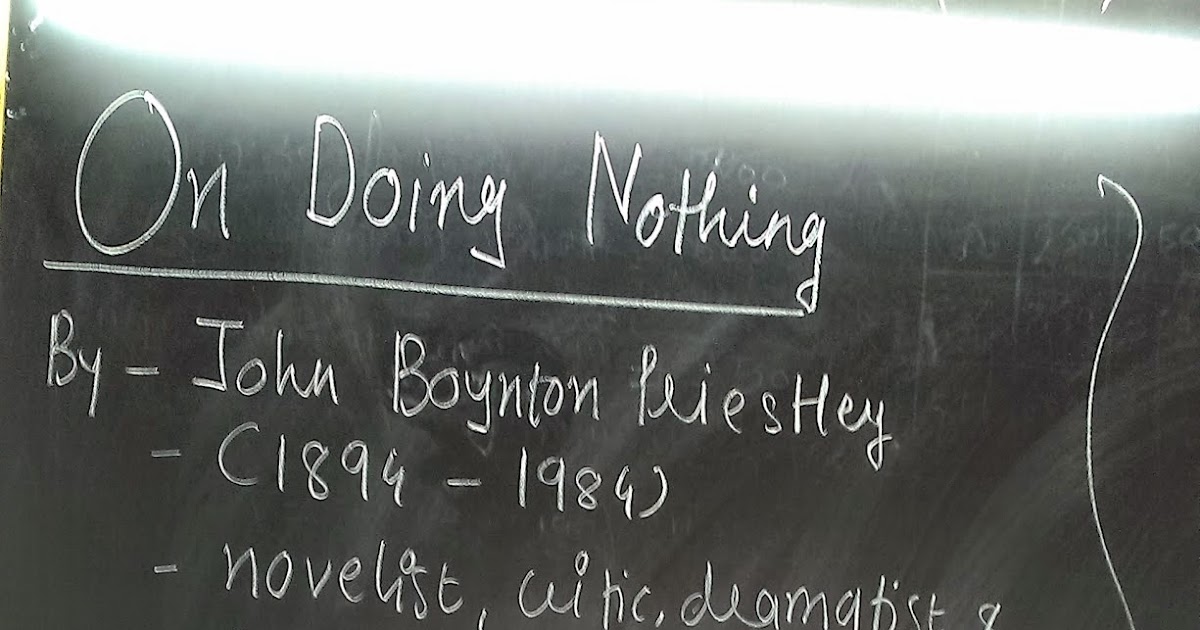 On Doing Nothing
By - John Boynton Priestley
- (1894 - 1984)
- novelist, critic, dramatist &